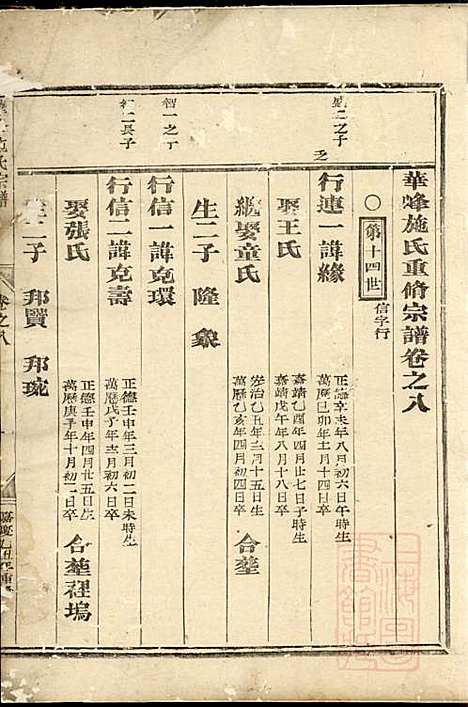 華峰施氏重修宗譜卷之八
○ 第十四世 信字行
之子
行連一諱緣
正德辛未年八月初六日午時生
萬曆己卯年十一月十四日卒
娶王氏
嘉靖乙酉年四月廿七日子時生
嘉靖戊午年八月十八日卒
繼娶童氏
弘治乙丑年三月十五日生
萬曆乙亥年四月初四日卒
合塟
生二子 隆 象
智一之丁
行信一諱克環
正德壬申年三月初二日未時生
萬曆戊子年十二月初六日卒
二長子
行信二諱克壽
娶張氏
正德壬申年四月廿五日生
萬曆庚子年十月初二日卒
合塟裡塢
生二子 邦賢 邦琬
施氏宗譜
卷之八
嘉慶